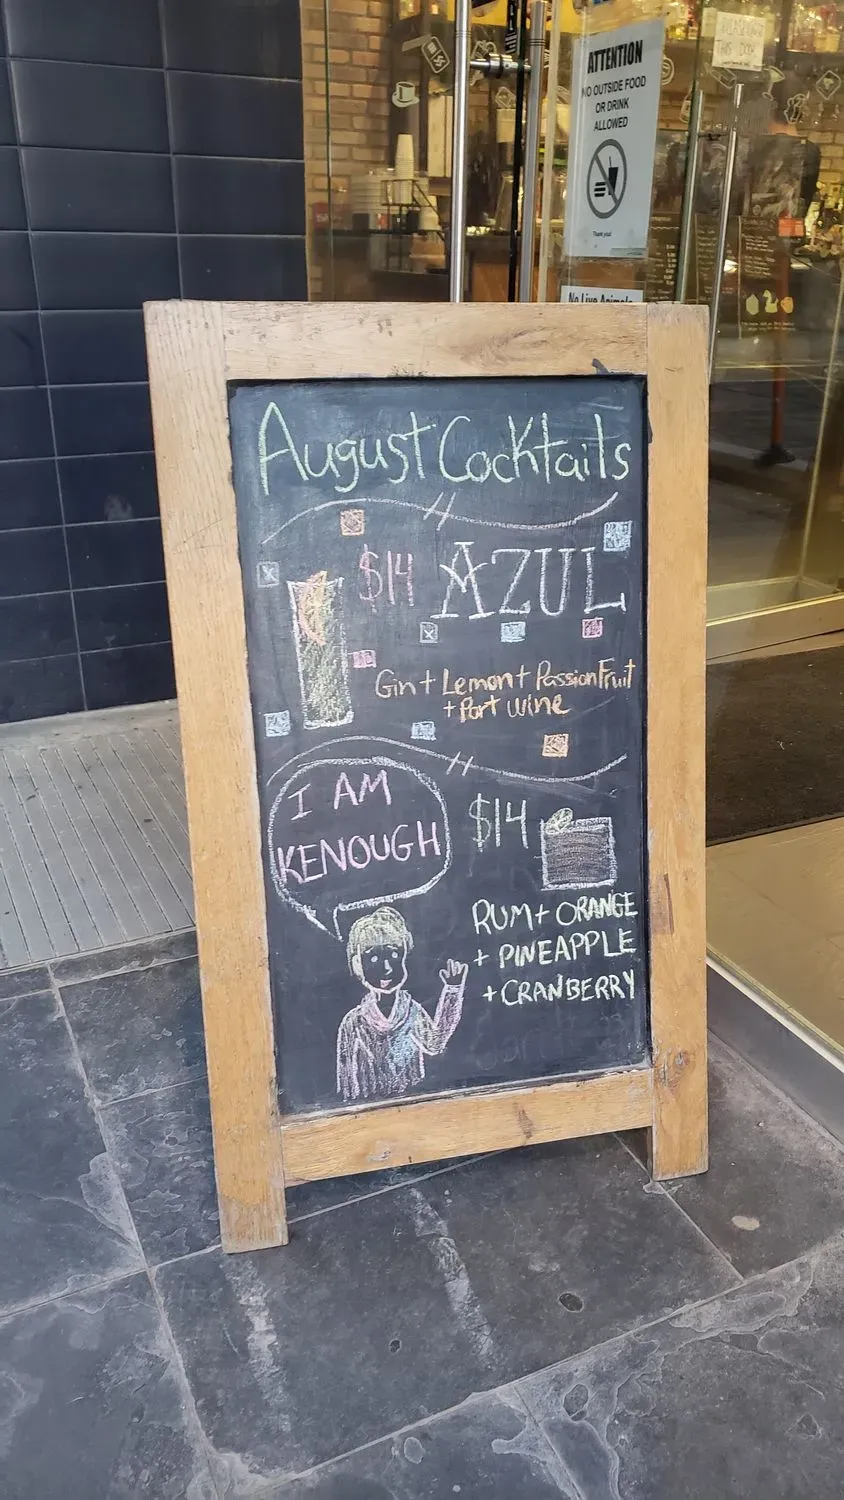 ATTENTION
NO OUTSIDE FOOD
OR DRINK
ALLOWED
Thank you!
No Live Animals
August Cocktails
$14 AZUL
Gin + Lemon + PassionFruit
+ Port wine
I AM
KENOUGH
$14
RUM + ORANGE
+ PINEAPPLE
+ CRANBERRY